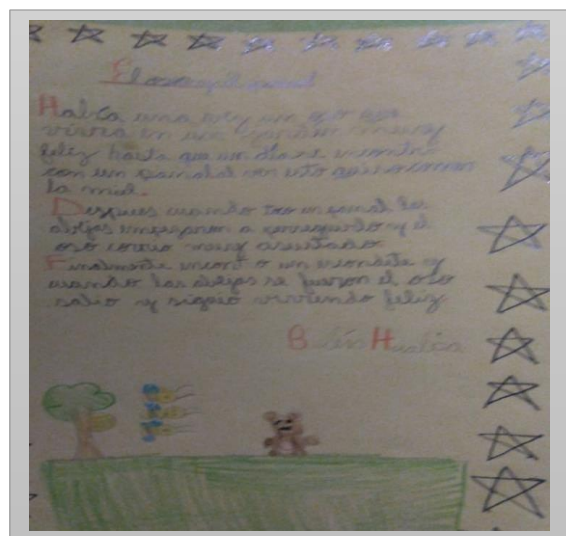 El oso y el panal
Había una vez un oso que
vivia en un jardin muy
feliz hasta que un dia se encontro
con un panal con esto quiso comer
la miel.
Despues cuando panal las
abejas empezaron a perseguirlo y el
oso corria muy asustado
Finalmente encont o un escondite y
cuando las abejas se fueron el oso
salio y siguió viviendo feliz
B lén H